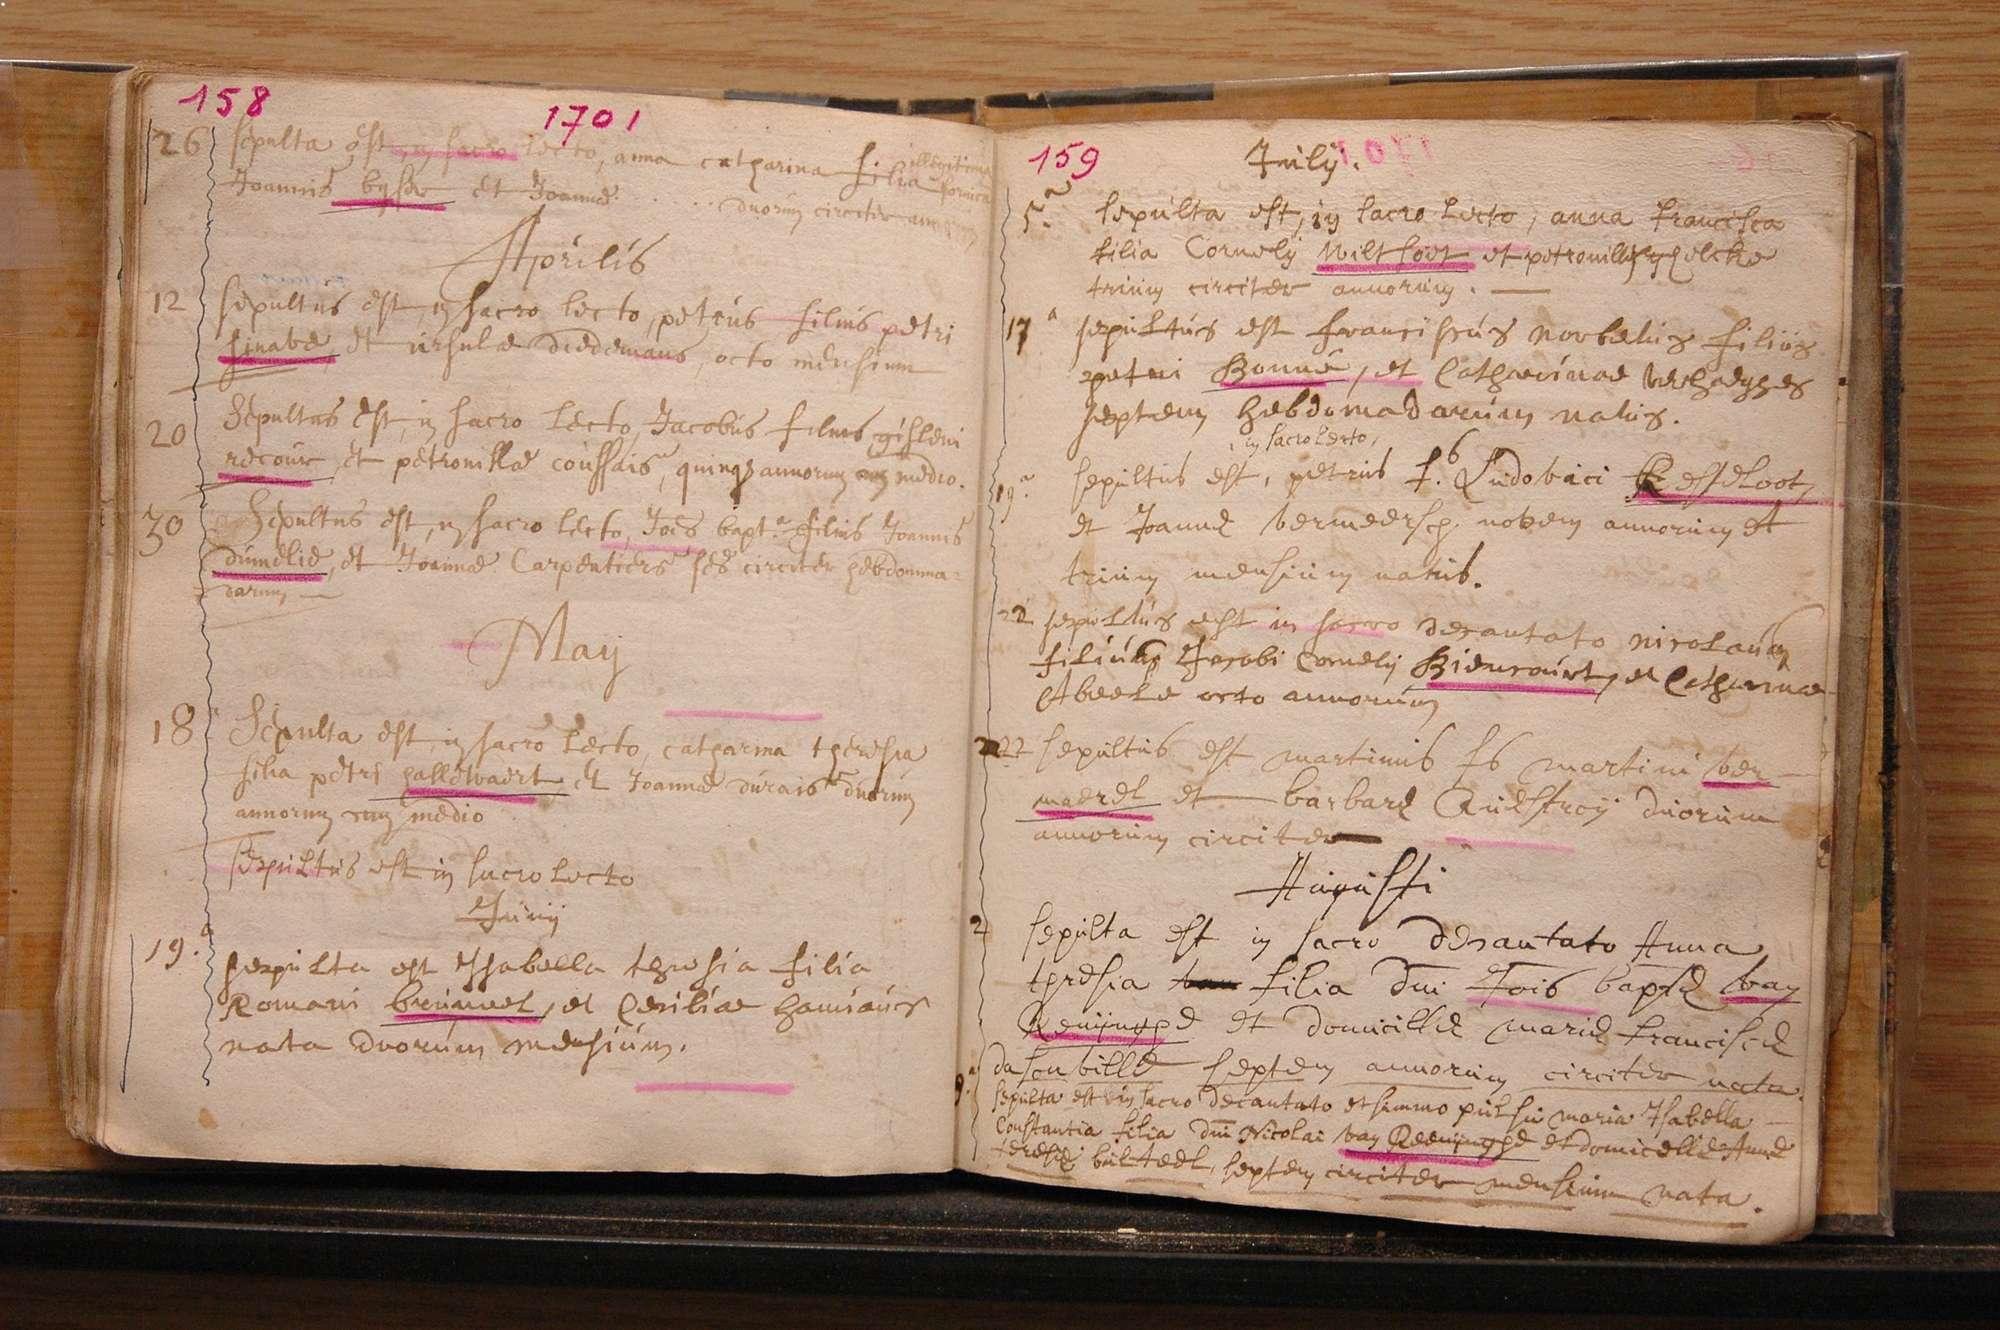 158
1701
26 sepulta est, in sacro lecto, anna catharina filia illegitima
Joannis et Joannæ duorum circiter
Aprilis
12 sepultus est, in sacro lecto, petrus filius petri
et ursulæ dedemans, octo mensium
20 Sepultus est, in sacro lecto, Jacobus filius gisleni
recour, et petronillæ coussais, quinq annorum cum medio.
30 Sepultus est, in sacro lecto, Joes bapt.a filius Joannis
dumelie, et Joannæ Carpentiers sex circiter hebdomma=
darum
May
18 Sepulta est, in sacro lecto, catharina theresia
filia petri hallewaert et Joannæ durais duorum
annorum cum medio
sepultus est in sacro lecto
Junij
19.a sepulta est Isabella theresia filia
Romani et Ceciliæ
nata duorum mensium.
159
July.
5.a sepulta est, in sacro lecto, anna francisca
filia Cornely et petronillæ
trium circiter annorum.
17a sepultus est franciscus norbertus filius
petri Bonne, et Catharinae Verhaeghes
septem hebdomadarum natus.
in sacro lecto,
19.a sepultus est, petrus f.s Ludovici Kesteloot,
et Joannæ Vermeersch novem annorum et
trium mensium natus.
22 sepultus est in sacro decantato nicolaus
filius Jacobi Cornely Biencourt, et Catharinae
Abeele octo annorum
22 sepultus est martinus fs martini ver
maerel et barbaræ duorum
annorum circiter
Augusti
2 sepulta est in sacro decantato Anna
theresia filia dni Jois baptæ van
Reninghe et domicillæ mariæ franciscæ
dascubille septem annorum circiter nata.
9.a sepulta est in sacro decantato et summo pulsu maria Isabella
Constantia filia dni Nicolai van Reninghe et domicellæ Annæ
teresiæ bulteel, septem circiter mensium nata.